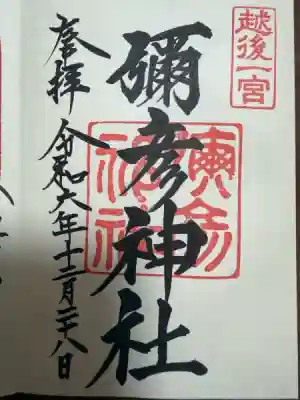 越後一宮
彌彦神社
登拝 令和六年十二月二十八日